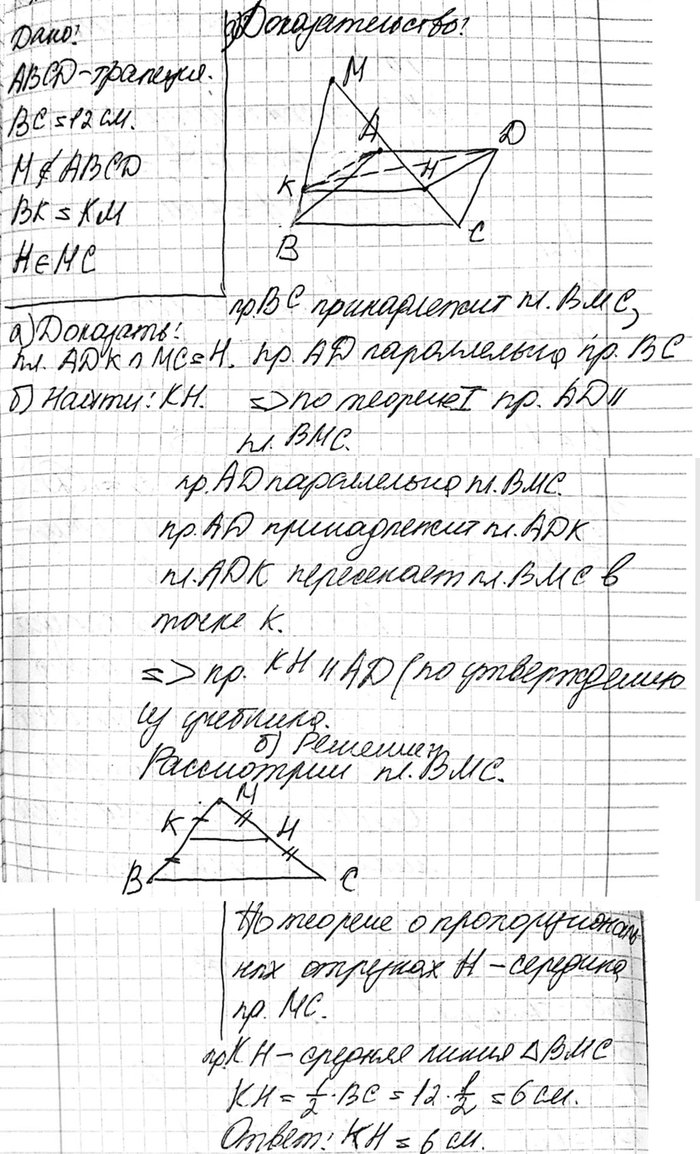 Дано:
ABCD-трапеция.
BC = 12 см.
M ∉ ABCD
BK = KM
H ∈ MC
а) Доказать:
пл. ADK ∩ MC = H.
б) Найти: KH.
а) Доказательство:
M
A
D
K
H
B
C
пр. BC принадлежит пл. BMC,
пр. AD параллельна пр. BC
=> по теореме I пр. AD ||
пл. BMC.
пр. AD параллельна пл. BMC.
пр. AD принадлежит пл. ADK
пл. ADK пересекает пл. BMC в
точке K.
=> пр. KH || AD (по утверждению
из учебника.
б) Решение:
Рассмотрим пл. BMC.
M
K
H
B
C
По теореме о пропорциональ-
ных отрезках H - середина
пр. MC.
пр. KH - средняя линия △BMC
KH = 1/2 · BC = 12 · 1/2 = 6 см.
Ответ: KH = 6 см.